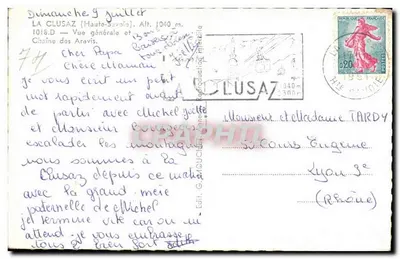 Dimanche 9 juillet
LA CLUSAZ (Haute-Savoie). Alt. 1040 m.
1018.D - Vue générale et
Chaîne des Aravis.
Cher Papa
Chère Maman
je vous écrit un petit
mot rapidement avant
de partir avec Michel Joëlle
et Monsieur
escalader les montagnes
nous sommes à la
Clusaz depuis ce matin
avec la grand-mère
paternelle de Michel
je termine vite car on m'
attend je vous embrasse
tous 2 bien fort
Bon
Baiser
Joëlle
LA CLUSAZ
1040m
0.20
1961
Hte SAVOIE
Monsieur et Madame TARDY
cours Eugénie
Lyon 3e
(Rhône)